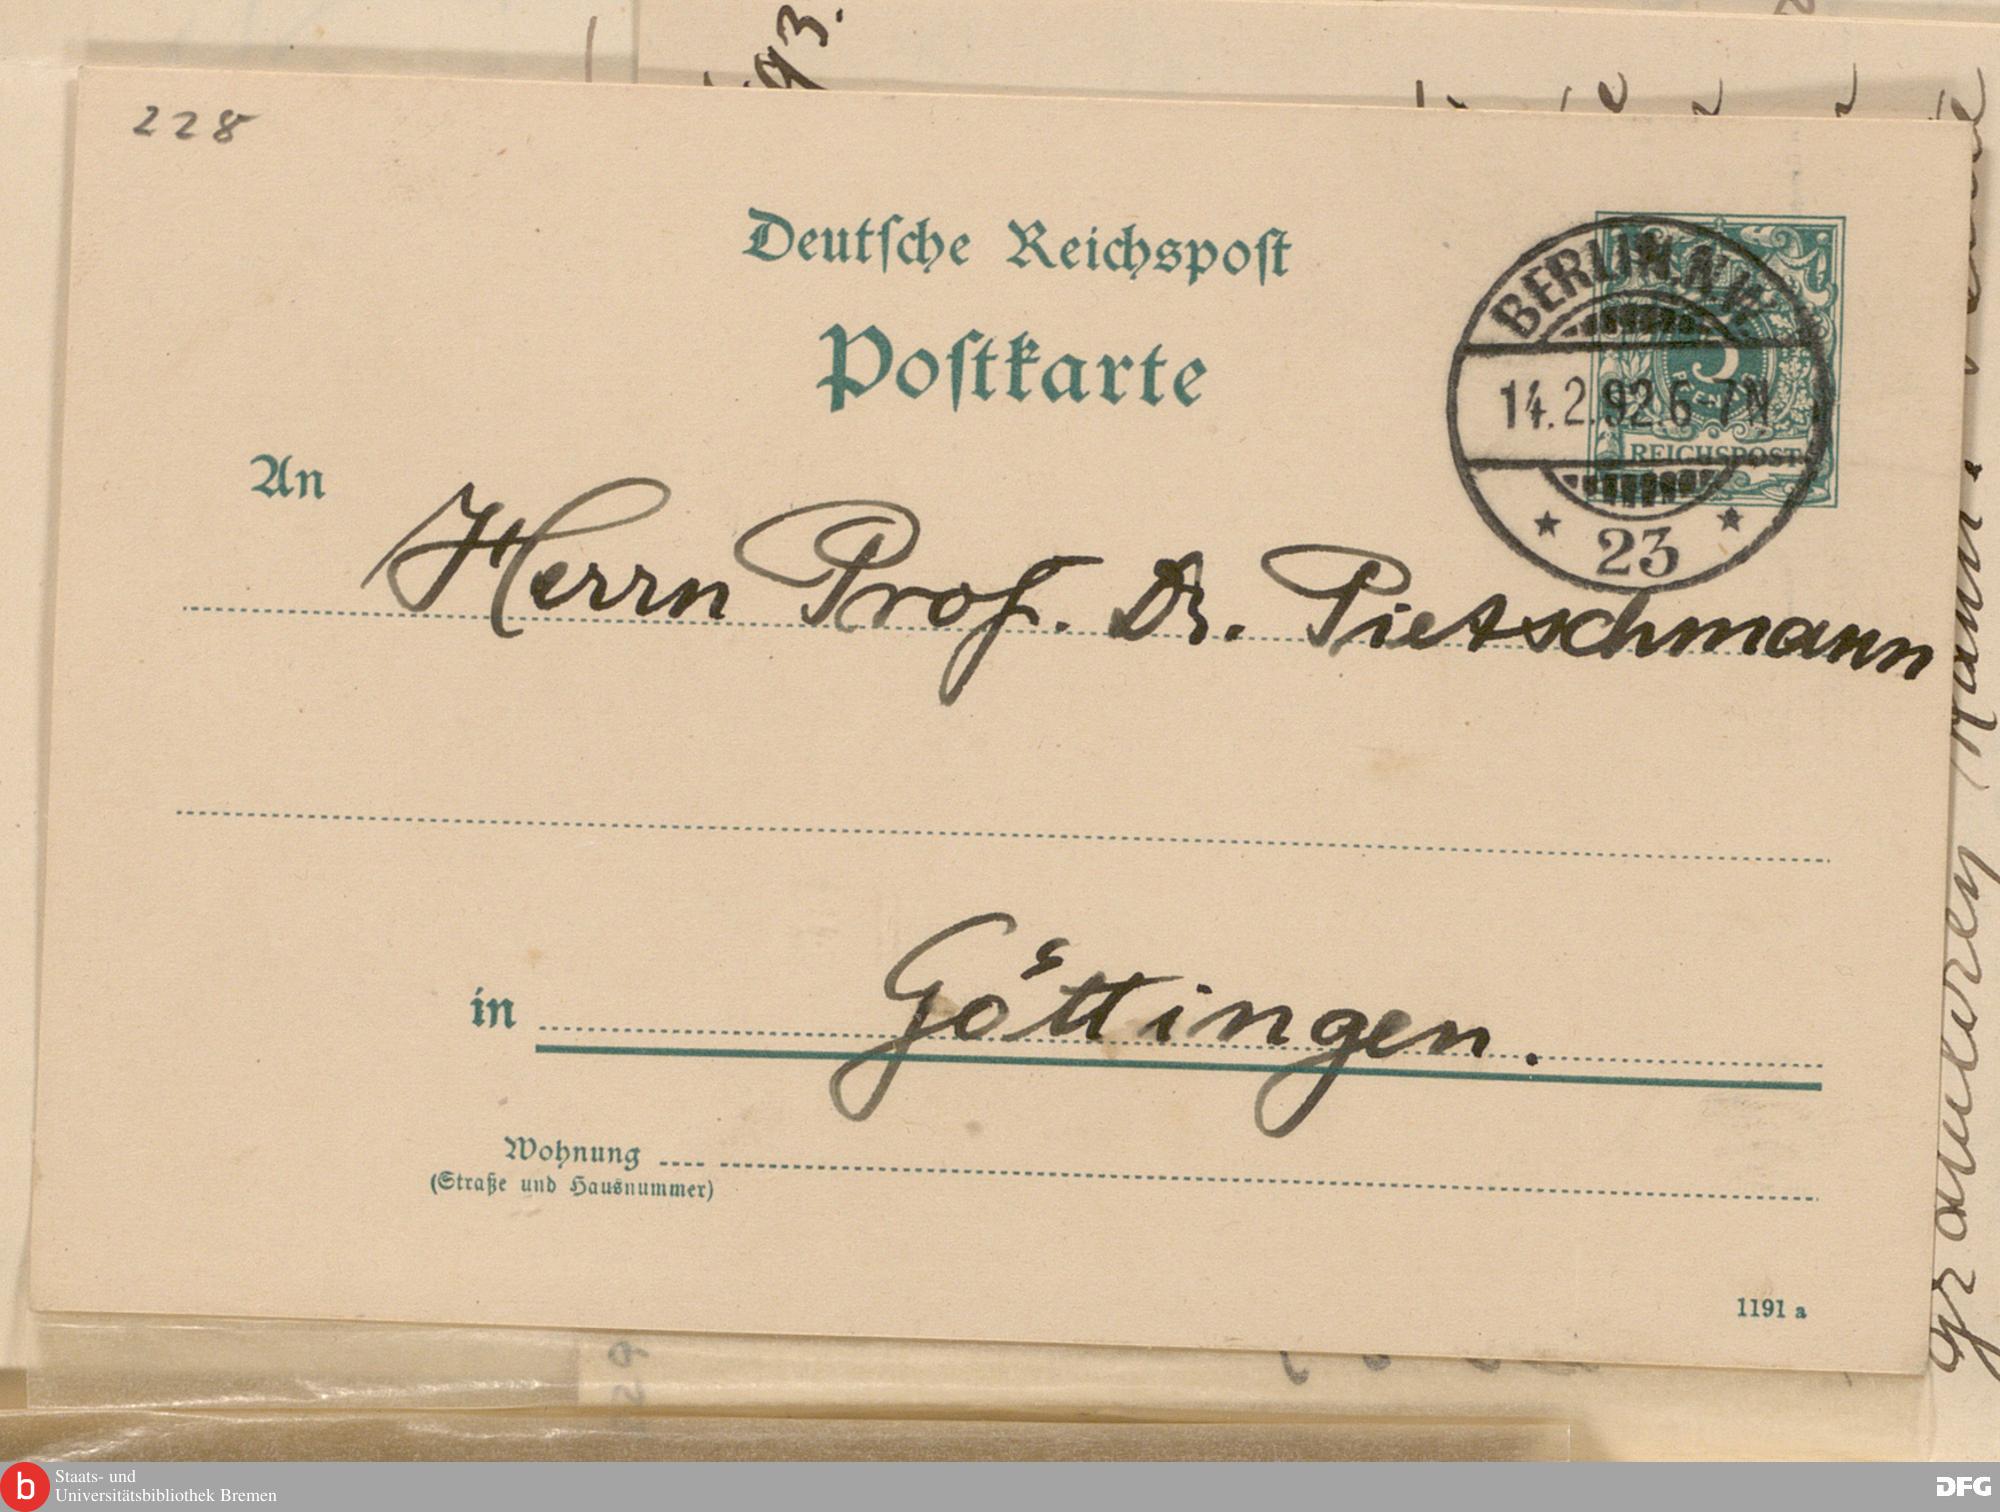 93.
228
Deutsche Reichspost
Postkarte
BERLIN.N.W.
14.2.92.6-7N
* 23 *
5
PFENNIG
REICHSPOST
An Herrn Prof. Dr. Pietschmann
in Göttingen.
Wohnung
(Straße und Hausnummer)
1191 a
Staats- und
Universitätsbibliothek Bremen
DFG